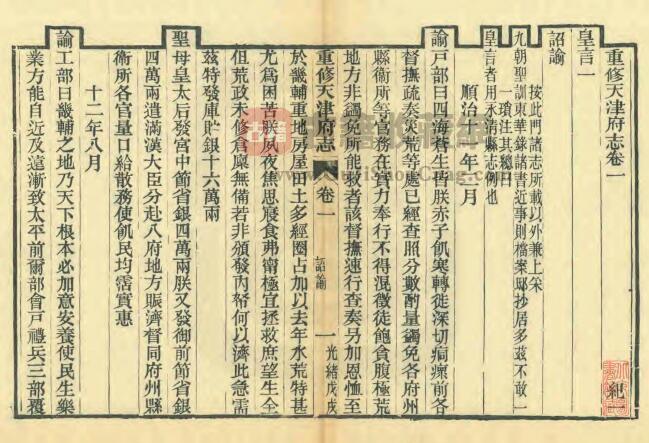 重修天津府志卷一
皇言一
詔諭
按此門諸志所載以外兼上采
九朝聖訓東華錄諸書近事則檔案邸抄居多茲不敢一
一瑣注其總曰
皇言者用永清縣志例也
順治十一年二月
諭戶部曰四海蒼生皆朕赤子飢寒轉徙深切痌瘝前各
督撫疏奏災荒等處已經查照分數酌量蠲免各府州
縣衛所等官務在實力奉行不得混徵徒飽貪腹極荒
地方非蠲免所能救者該督撫速行查奏另加恩恤至
重修天津府志 卷一 詔諭 一 光緒戊戌
於畿輔重地房屋田土多經圈占加以去年水荒特甚
尤爲困苦朕夙夜焦思寢食弗甯極宜拯救庶望生全
但荒政未修倉廩無備若非頒發內帑何以濟此急需
茲特發庫貯銀十六萬兩
聖母皇太后發宮中節省銀四萬兩朕又發御前節省銀
四萬兩遣滿漢大臣分赴八府地方賑濟督同府州縣
衛所各官量口給散務使飢民均霑實惠
十二年八月
諭工部曰畿輔之地乃天下根本必加意安養使民生樂
業方能自近及遠漸致太平前爾部會戶禮兵三部覆
紀一